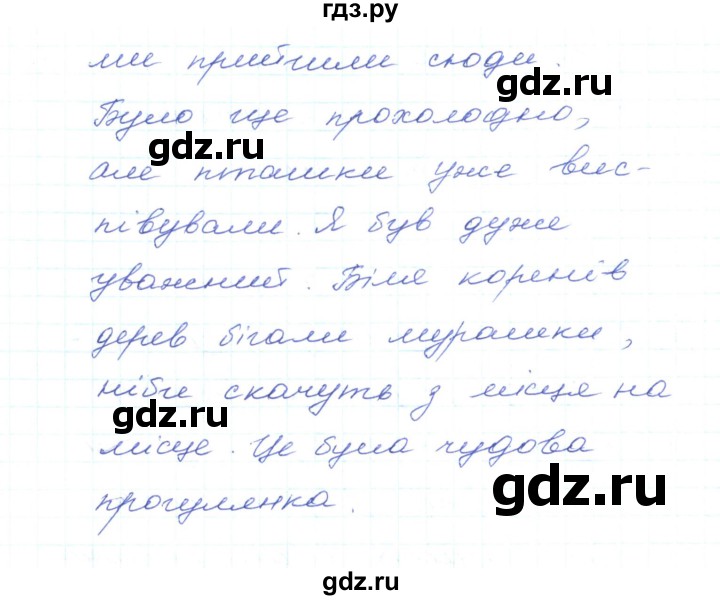 гдз.ру
ми прийшли сюди.
gdz.ru
Було ще прохолодно,
gdz.ru
але пташки уже вис-
півували. Я був дуже
уважний. Біля коренів
дерев бігали мурашки,
ніби скачуть з місця на
gdz.ru
місце. Це була чудова
gdz.ru
прогулянка.
gdz.ru